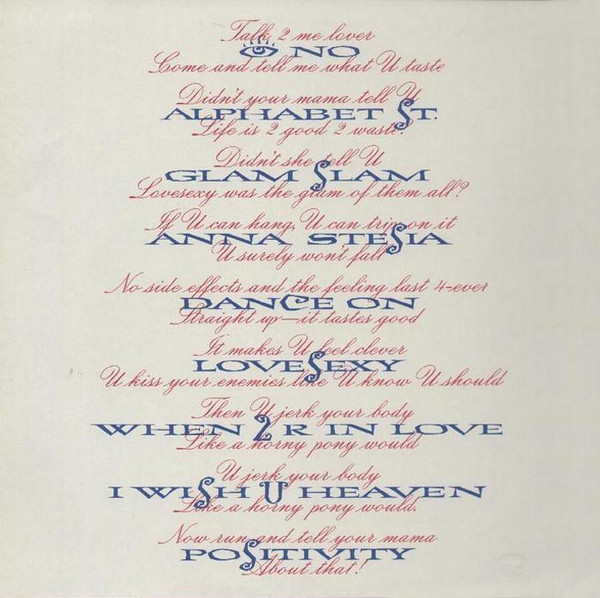 Talk 2 me lover
👁 NO
Come and tell me what U taste
Didn't your mama tell U
ALPHABET ST.
Life is 2 good 2 waste.
Didn't she tell U
GLAM SLAM
Lovesexy was the glam of them all?
If U can hang, U can trip on it
ANNA STESIA
U surely won't fall
No side effects and the feeling last 4-ever
DANCE ON
Straight up—it tastes good
It makes U feel clever
LOVESEXY
U kiss your enemies like U know U should
Then U jerk your body
WHEN 2 R IN LOVE
Like a horny pony would
U jerk your body
I WISH U HEAVEN
Like a horny pony would.
Now run and tell your mama
POSITIVITY
About that!